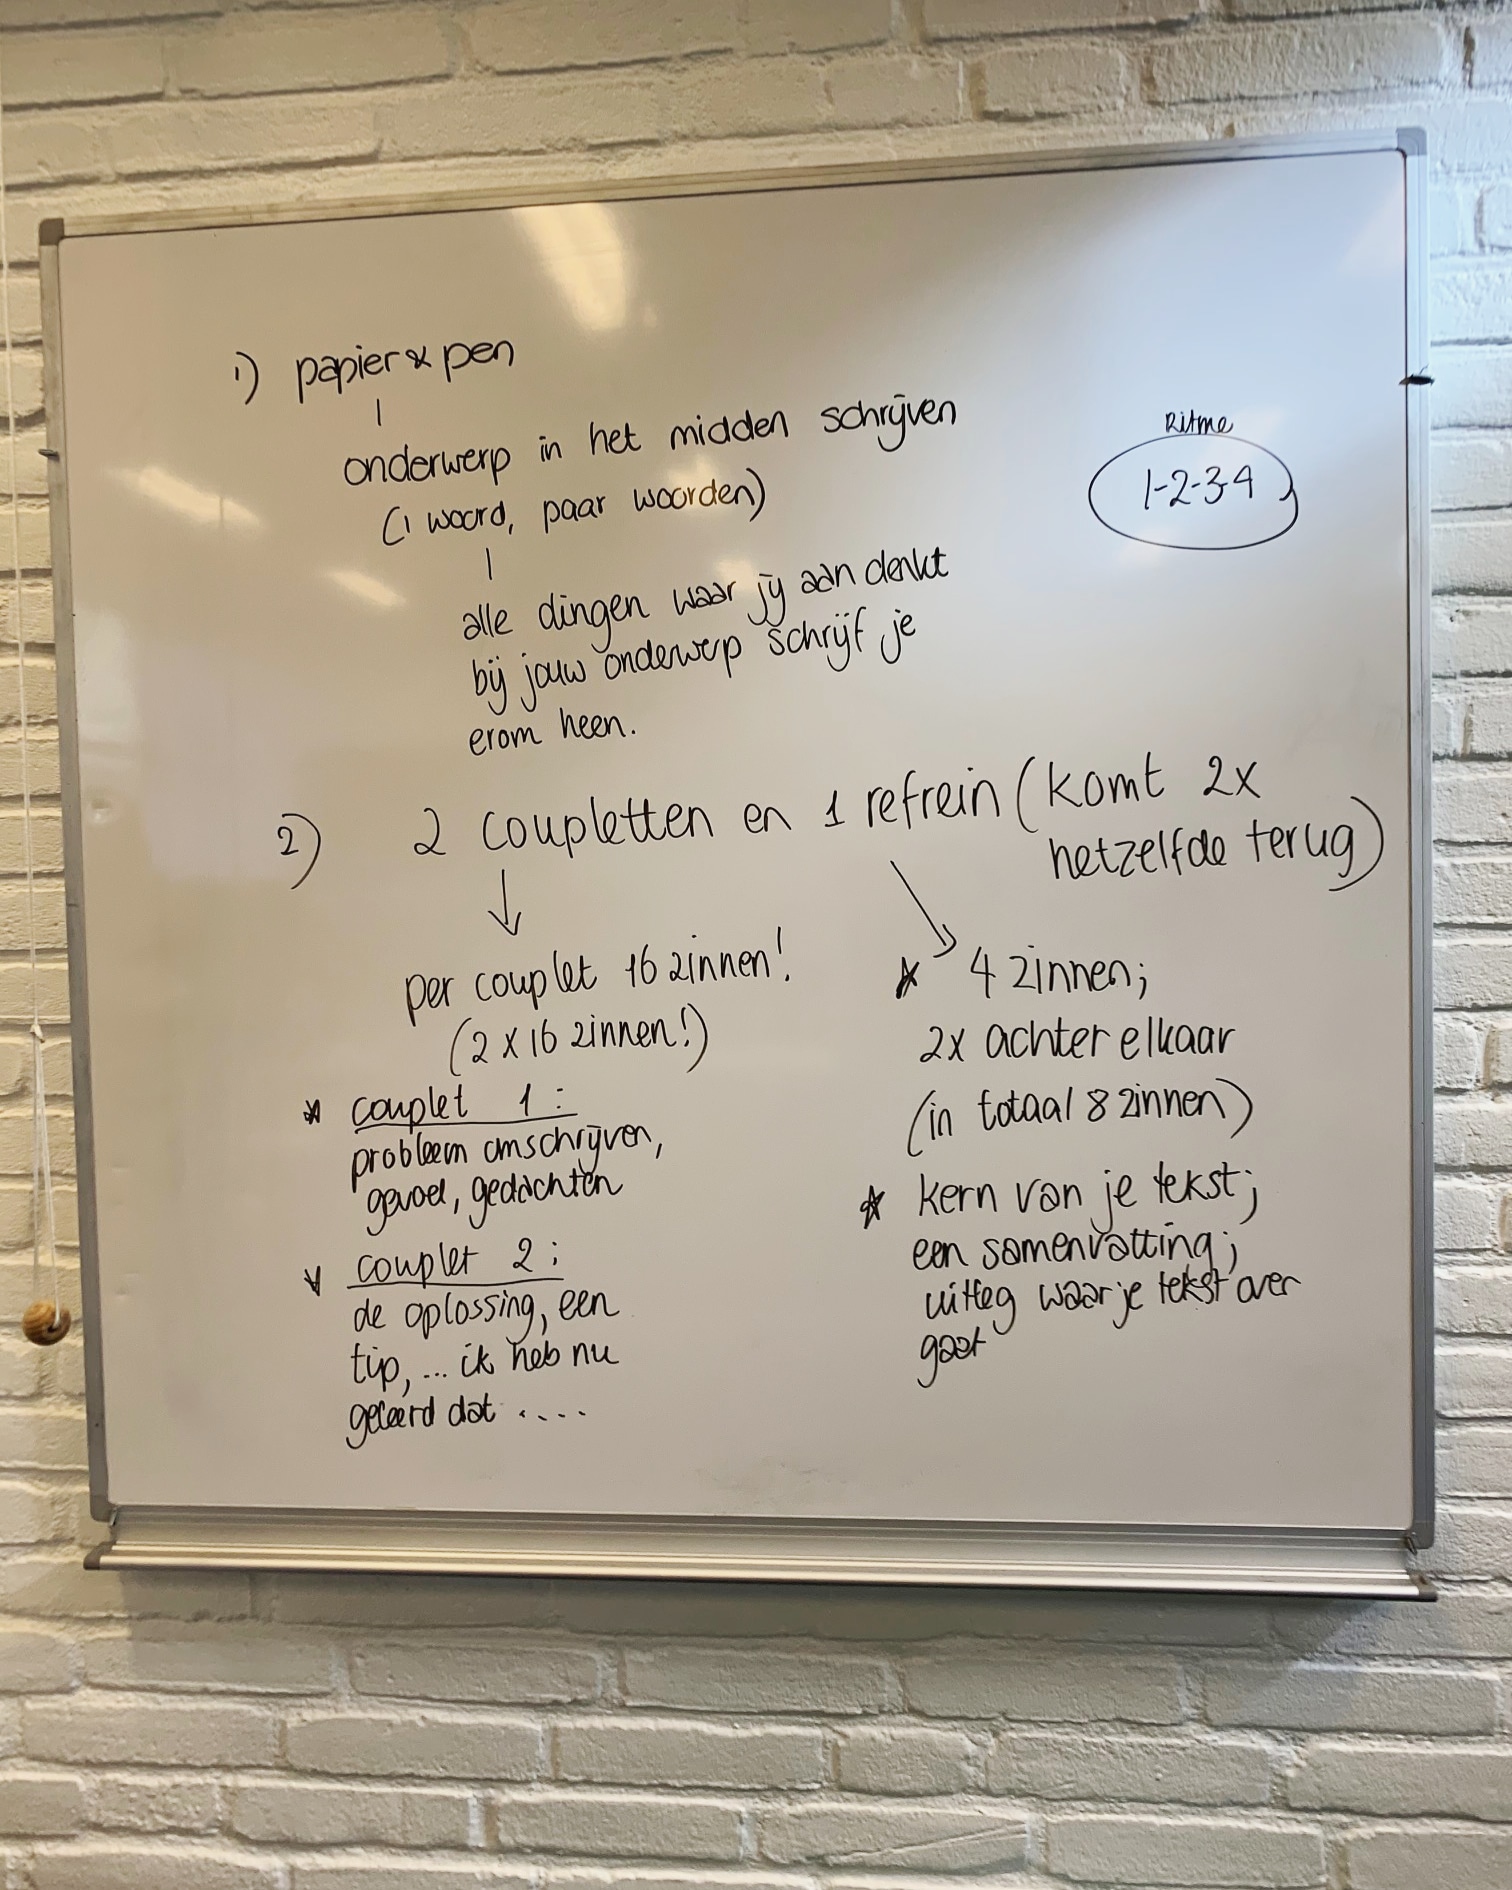 1) papier & pen
onderwerp in het midden schrijven
(1 woord, paar woorden)
alle dingen waar jij aan denkt
bij jouw onderwerp schrijf je
erom heen.
Ritme
1-2-3-4
2) 2 coupletten en 1 refrein (komt 2x
hetzelfde terug)
per couplet 16 zinnen!
(2 x 16 zinnen!)
* couplet 1:
probleem omschrijven,
gevoel, gedachten
* couplet 2:
de oplossing, een
tip, ... ik heb nu
geleerd dat ....
* 4 zinnen;
2x achter elkaar
(in totaal 8 zinnen)
* kern van je tekst;
een samenvatting;
uitleg waar je tekst over
gaat